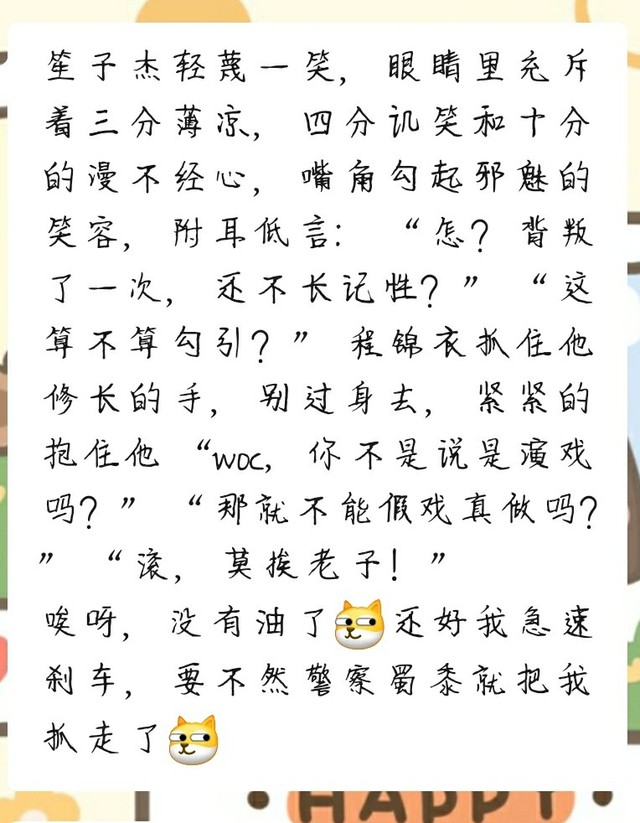 笙子杰轻蔑一笑，眼睛里充斥
着三分薄凉，四分讥笑和十分
的漫不经心，嘴角勾起邪魅的
笑容，附耳低言：“怎？背叛
了一次，还不长记性？”“这
算不算勾引？”程锦衣抓住他
修长的手，别过身去，紧紧的
抱住他“woc，你不是说是演戏
吗？”“那就不能假戏真做吗？
”“滚，莫挨老子！”
唉呀，没有油了还好我急速
刹车，要不然警察蜀黍就把我
抓走了
HAPPY